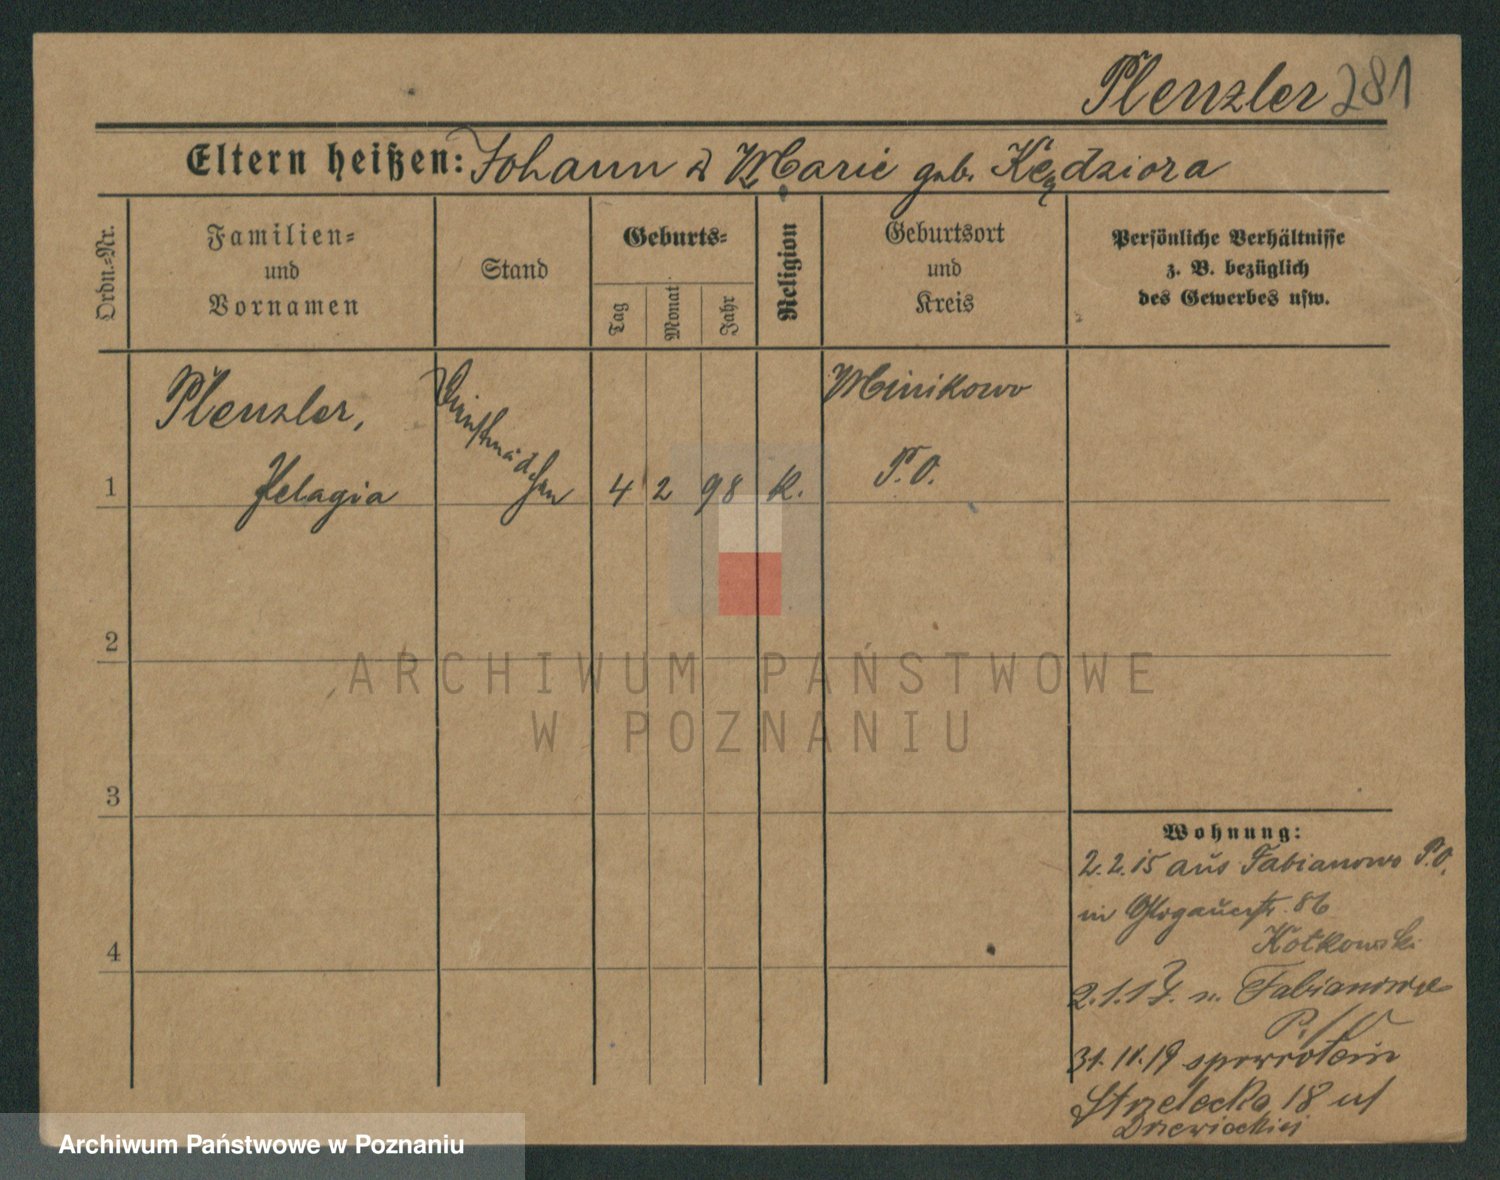 Plenzler 281
Eltern heißen: Johann & Marie geb. Kędziora
Ordn.=Nr.
Familien=
und
Vornamen
Stand
Geburts=
Tag
Monat
Jahr
Religion
Geburtsort
und
Kreis
Persönliche Verhältnisse
z. B. bezüglich
des Gewerbes usw.
1
Plenzler,
Pelagia
Dienstmädchen
4 2 98 k.
Minikowo
P.O.
2
3
4
Wohnung:
2.2.15 aus Fabianowo P.O.
in Glogauerstr. 86
Kotkowski
2.1.17. n. Fabianowo
P./O
31.11.19 spowrotem
Strzelecka 18 u/
Drzewieckiej
ARCHIWUM PAŃSTWOWE
W POZNANIU
Archiwum Państwowe w Poznaniu